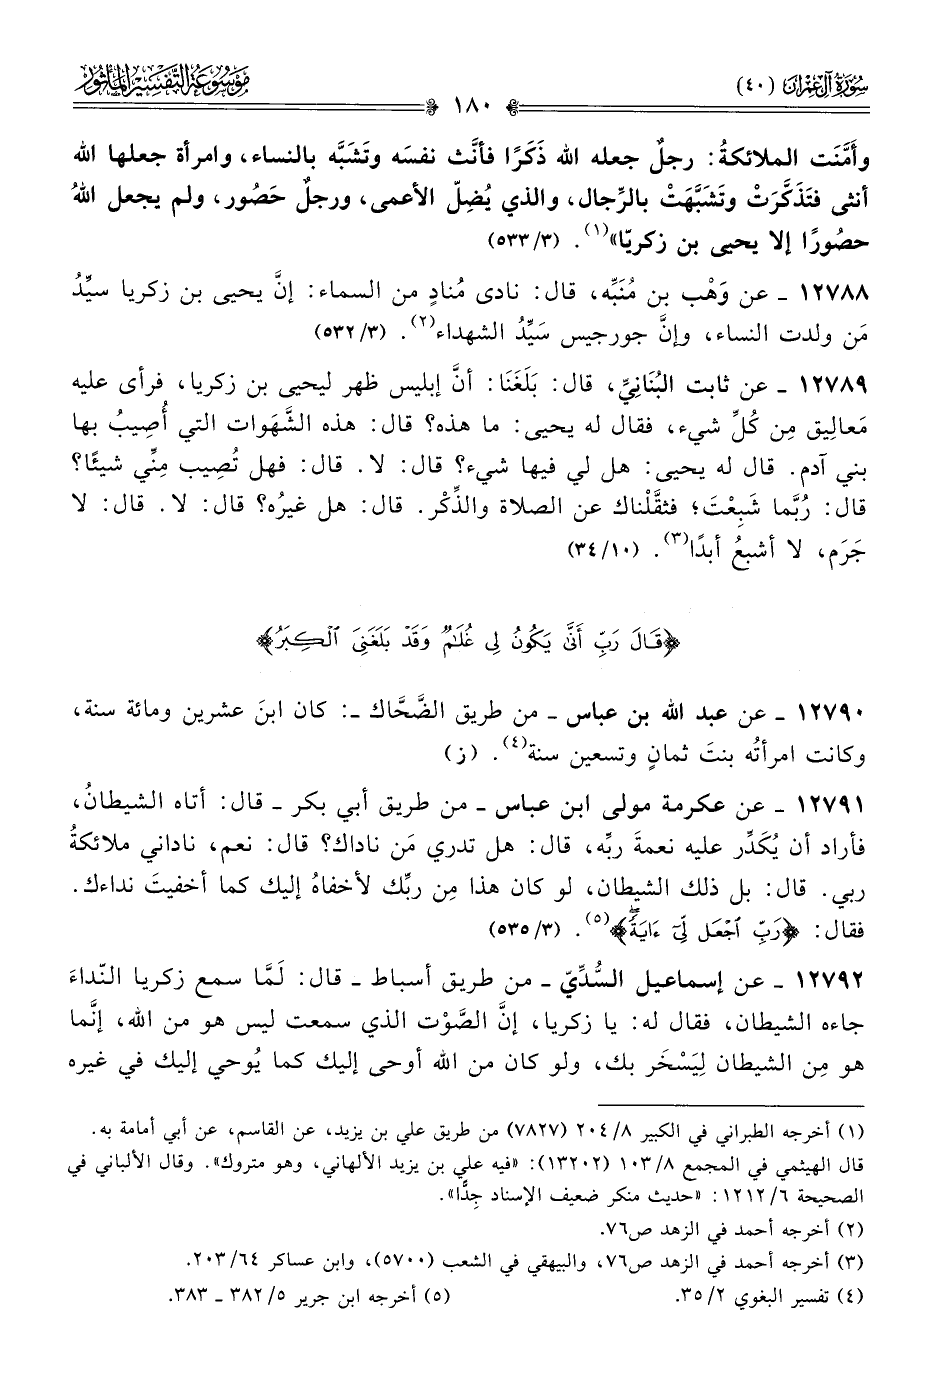 سُورَةُ آلِ عِمْرَانَ (٤٠)
١٨٠
مَوْسُوعَةُ التَّفْسِيرِ المَأْثُورِ
وأمَّنَت الملائكةُ: رجلٌ جعله الله ذَكَرًا فأنَّث نفسَه وتَشَبَّه بالنساء، وامرأة جعلها الله
أنثى فتَذَكَّرَتْ وتَشَبَّهَتْ بالرِّجال، والذي يُضِلّ الأعمى، ورجلٌ حَصُور، ولم يجعل اللهُ
حصُورًا إلا يحيى بن زكريّا»(١). (٥٣٣/٣)
١٢٧٨٨ ـ عن وَهْب بن مُنَبِّه، قال: نادى مُنادٍ من السماء: إنَّ يحيى بن زكريا سيِّدُ
مَن ولدت النساء، وإنَّ جورجيس سَيِّدُ الشهداء(٢). (٥٣٢/٣)
١٢٧٨٩ ـ عن ثابت البُنَانِيِّ، قال: بَلَغَنَا: أنَّ إبليس ظهر ليحيى بن زكريا، فرأى عليه
مَعالِيق مِن كُلِّ شيء، فقال له يحيى: ما هذه؟ قال: هذه الشَّهَوات التي أُصِيبُ بها
بني آدم. قال له يحيى: هل لي فيها شيء؟ قال: لا. قال: فهل تُصِيب مِنِّي شيئًا؟
قال: رُبَّما شَبِعْتَ؛ فثقَّلْناك عن الصلاة والذِّكْر. قال: هل غيرُه؟ قال: لا. قال: لا
جَرَم، لا أشبعُ أبدًا(٣). (٣٤/١٠)
﴿قَالَ رَبِّ أَنَّىٰ يَكُونُ لِي غُلَـٰمٌ وَقَدْ بَلَغَنِيَ ٱلْكِبَرُ﴾
١٢٧٩٠ ـ عن عبد الله بن عباس ـ من طريق الضَّحَّاك ـ: كان ابنَ عشرين ومائة سنة،
وكانت امرأتُه بنتَ ثمانٍ وتسعين سنة(٤). (ز)
١٢٧٩١ ـ عن عكرمة مولى ابن عباس ـ من طريق أبي بكر ـ قال: أتاه الشيطانُ،
فأراد أن يُكَدِّر عليه نعمةَ ربِّه، قال: هل تدري مَن ناداك؟ قال: نعم، ناداني ملائكةُ
ربي. قال: بل ذلك الشيطان، لو كان هذا مِن ربِّك لأخفاهُ إليك كما أخفيتَ نداءك.
فقال: ﴿رَبِّ ٱجْعَل لِّيٓ ءَايَةًۖ﴾(٥). (٥٣٥/٣)
١٢٧٩٢ ـ عن إسماعيل السُّدِّيّ ـ من طريق أسباط ـ قال: لَمَّا سمع زكريا النّداءَ
جاءه الشيطان، فقال له: يا زكريا، إنَّ الصَّوْت الذي سمعت ليس هو من الله، إنَّما
هو مِن الشيطان لِيَسْخَر بك، ولو كان من الله أوحى إليك كما يُوحي إليك في غيره
(١) أخرجه الطبراني في الكبير ٢٠٤/٨ (٧٨٢٧) من طريق علي بن يزيد، عن القاسم، عن أبي أمامة به.
قال الهيثمي في المجمع ١٠٣/٨ (١٣٢٠٢): «فيه علي بن يزيد الألهاني، وهو متروك». وقال الألباني في
الصحيحة ١٢١٢/٦: «حديث منكر ضعيف الإسناد جِدًّا».
(٢) أخرجه أحمد في الزهد ص٧٦.
(٣) أخرجه أحمد في الزهد ص٧٦، والبيهقي في الشعب (٥٧٠٠)، وابن عساكر ٢٠٣/٦٤.
(٤) تفسير البغوي ٣٥/٢. (٥) أخرجه ابن جرير ٣٨٢/٥ ـ ٣٨٣.